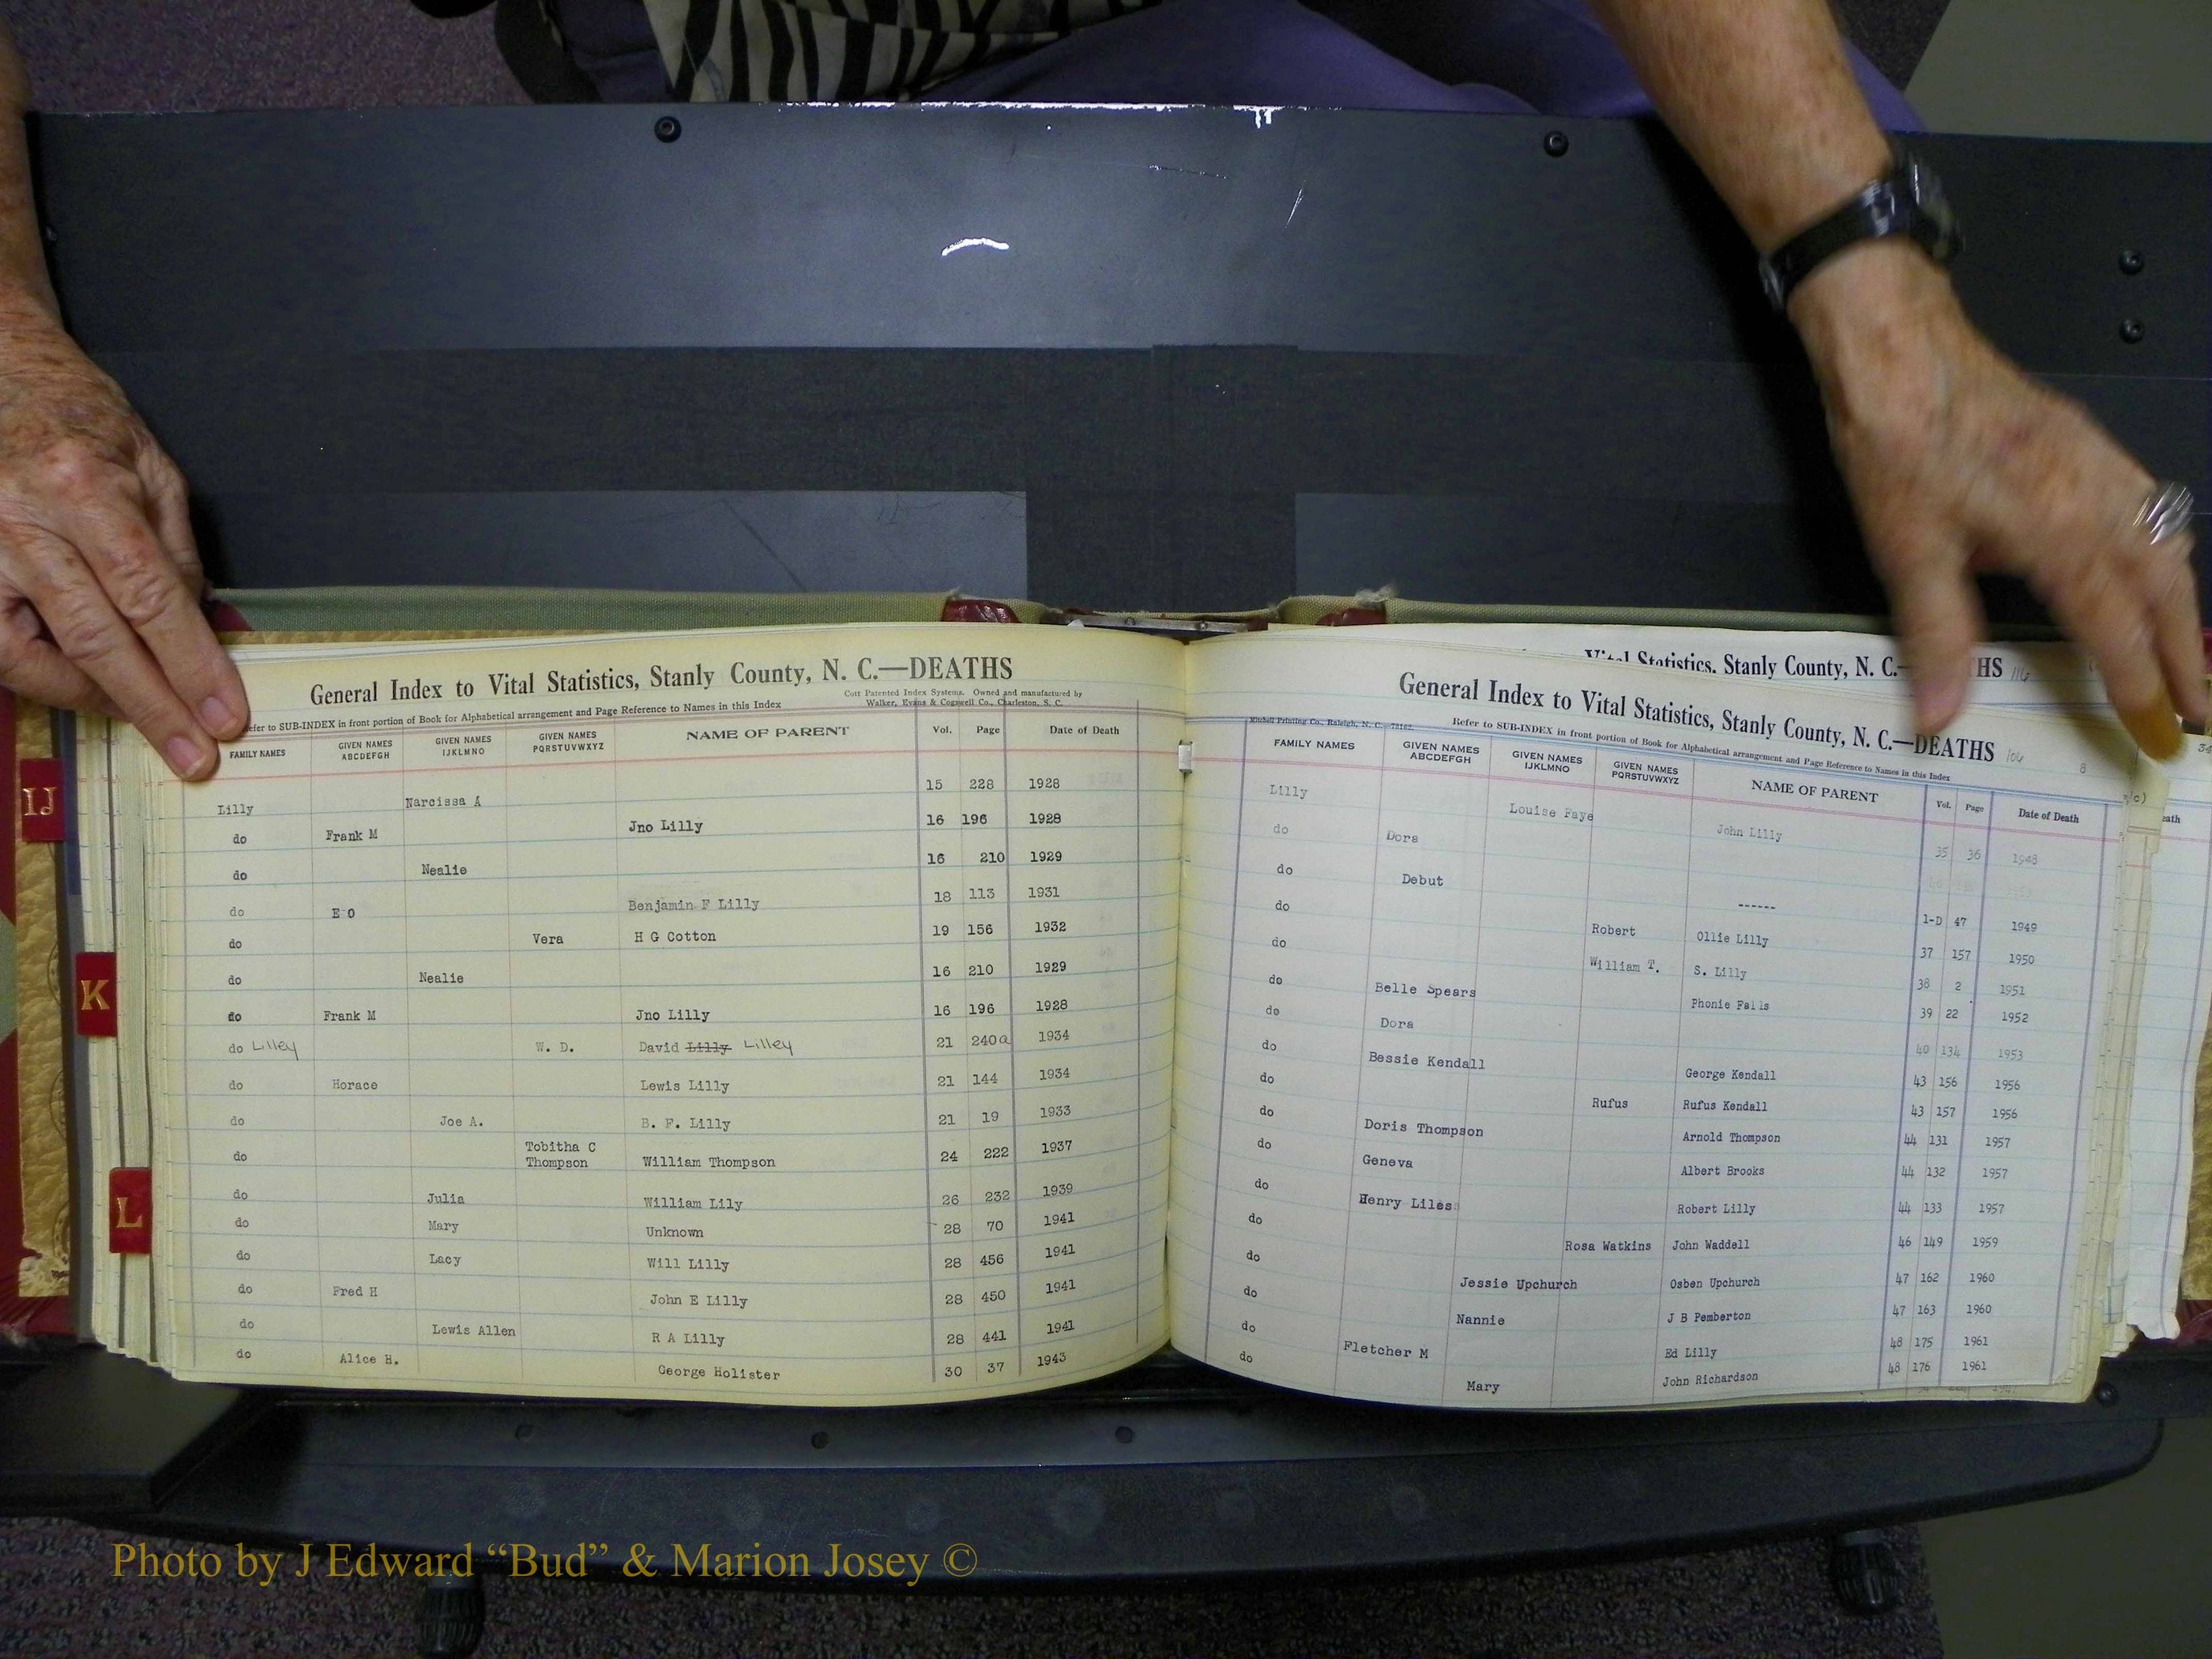 General Index to Vital Statistics, Stanly County, N. C.—DEATHS
Cott Patented Index Systems. Owned and manufactured by
Walker, Evans & Cogswell Co., Charleston, S. C.
efer to SUB-INDEX in front portion of Book for Alphabetical arrangement and Page Reference to Names in this Index
FAMILY NAMES GIVEN NAMES ABCDEFGH GIVEN NAMES IJKLMNO GIVEN NAMES PQRSTUVWXYZ NAME OF PARENT Vol. Page Date of Death
Lilly Narcissa A 15 228 1928
do Frank M Jno Lilly 16 196 1928
do Nealie 16 210 1929
do E O Benjamin F Lilly 18 113 1931
do Vera H G Cotton 19 156 1932
do Nealie 16 210 1929
do Frank M Jno Lilly 16 196 1928
do Lilley W. D. David Lilly Lilley 21 240a 1934
do Horace Lewis Lilly 21 144 1934
do Joe A. B. F. Lilly 21 19 1933
do Tobitha C Thompson William Thompson 24 222 1937
do Julia William Lily 26 232 1939
do Mary Unknown 28 70 1941
do Lacy Will Lilly 28 456 1941
do Fred H John E Lilly 28 450 1941
do Lewis Allen R A Lilly 28 441 1941
do Alice H. George Holister 30 37 1943
IJ
K
L
Vital Statistics, Stanly County, N. C.— THS 116
General Index to Vital Statistics, Stanly County, N. C.—DEATHS 106
8
Mitchell Printing Co., Raleigh, N. C.
Refer to SUB-INDEX in front portion of Book for Alphabetical arrangement and Page Reference to Names in this Index
FAMILY NAMES GIVEN NAMES ABCDEFGH GIVEN NAMES IJKLMNO GIVEN NAMES PQRSTUVWXYZ NAME OF PARENT Vol. Page Date of Death
Lilly Louise Faye John Lilly 35 36 1948
do Dora
do Debut ------ 1-D 47 1949
do Robert Ollie Lilly 37 157 1950
do William T. S. Lilly 38 2 1951
do Belle Spears Phonie Falls 39 22 1952
do Dora 40 134 1953
do Bessie Kendall George Kendall 43 156 1956
do Rufus Rufus Kendall 43 157 1956
do Doris Thompson Arnold Thompson 44 131 1957
do Geneva Albert Brooks 44 132 1957
do Henry Liles Robert Lilly 44 133 1957
do Rosa Watkins John Waddell 46 149 1959
do Jessie Upchurch Osben Upchurch 47 162 1960
do Nannie J B Pemberton 47 163 1960
do Fletcher M Ed Lilly 48 175 1961
do Mary John Richardson 48 176 1961
Photo by J Edward “Bud” & Marion Josey ©